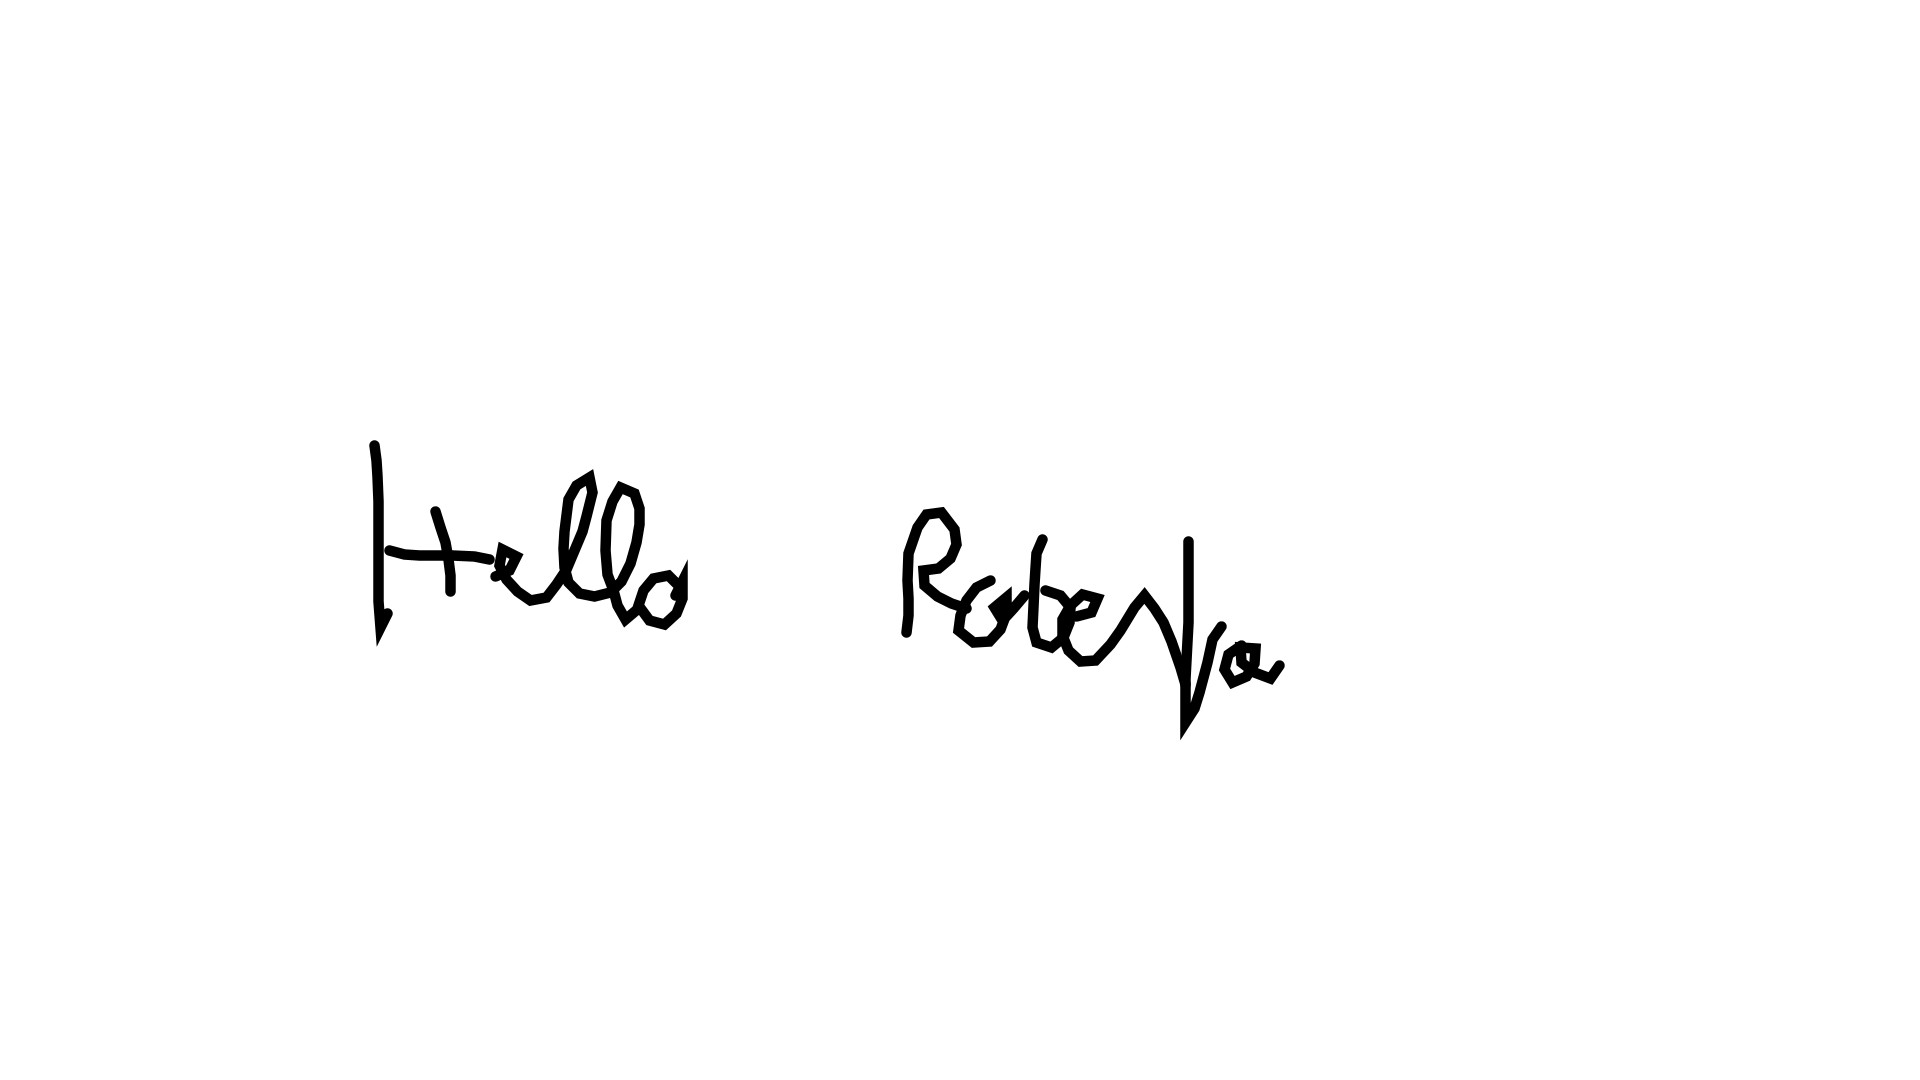 Hello Roberta